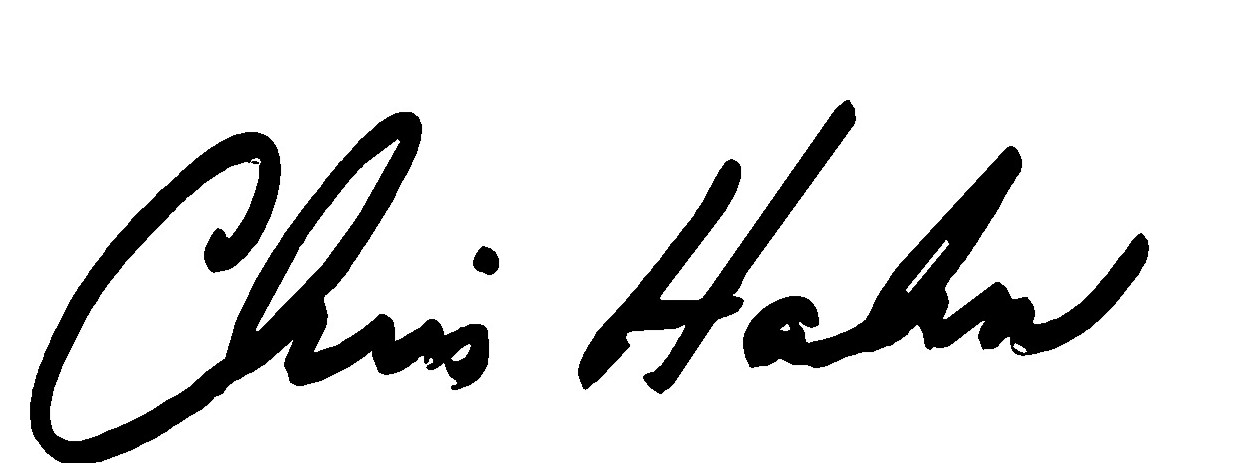 Chris Hahn